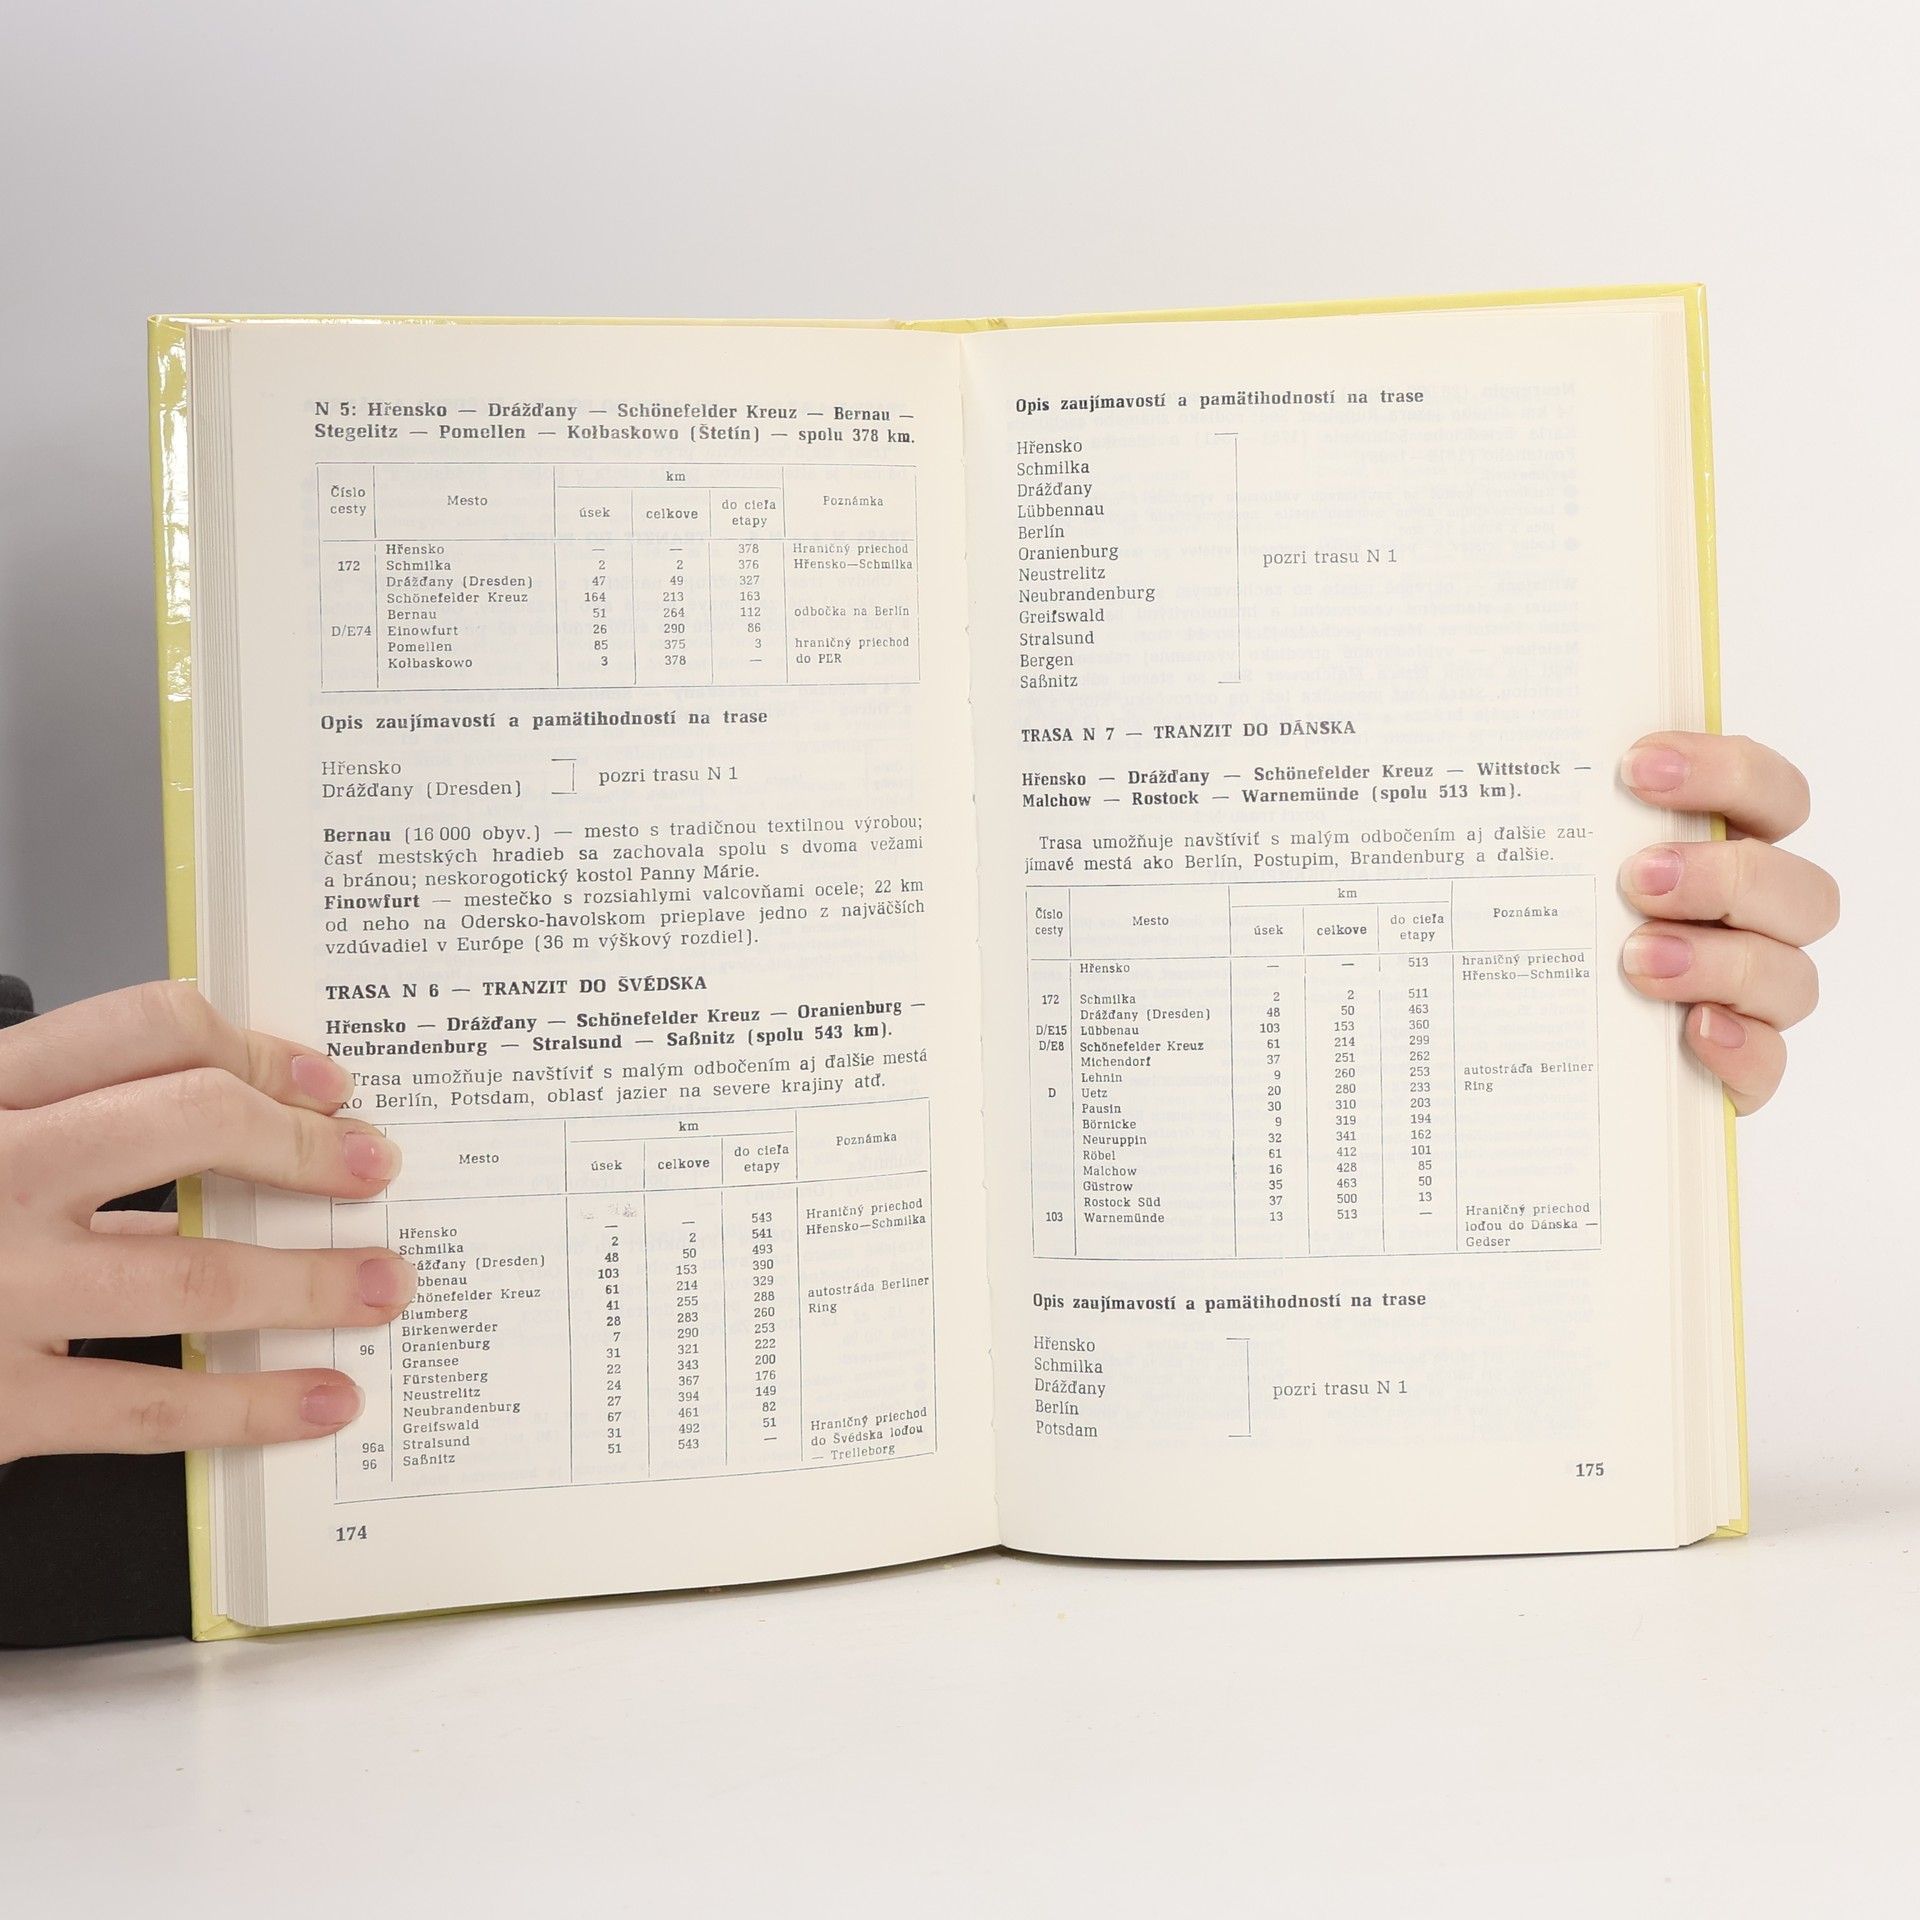 N 5: Hřensko — Drážďany — Schönefelder Kreuz — Bernau —
Stegelitz — Pomellen — Kołbaskowo (Štetín) — spolu 378 km.
Číslo cesty Mesto km úsek celkove do cieľa etapy Poznámka
Hřensko — — 378 Hraničný priechod
172 Schmilka 2 2 376 Hřensko—Schmilka
Drážďany (Dresden) 47 49 327
Schönefelder Kreuz 164 213 163
Bernau 51 264 112 odbočka na Berlín
D/E74 Einowfurt 26 290 86
Pomellen 85 375 3 hraničný priechod
Kołbaskowo 3 378 — do PER
Opis zaujímavostí a pamätihodností na trase
Hřensko
Drážďany (Dresden)
pozri trasu N 1
Bernau (16 000 obyv.) — mesto s tradičnou textilnou výrobou;
časť mestských hradieb sa zachovala spolu s dvoma vežami
a bránou; neskorogotický kostol Panny Márie.
Finowfurt — mestečko s rozsiahlymi valcovňami ocele; 22 km
od neho na Odersko-havolskom prieplave jedno z najväčších
vzdúvadiel v Európe (36 m výškový rozdiel).
TRASA N 6 — TRANZIT DO ŠVÉDSKA
Hřensko — Drážďany — Schönefelder Kreuz — Oranienburg —
Neubrandenburg — Stralsund — Saßnitz (spolu 543 km).
Trasa umožňuje navštíviť s malým odbočením aj ďalšie mestá
ko Berlín, Potsdam, oblasť jazier na severe krajiny atď.
Mesto km úsek celkove do cieľa etapy Poznámka
Hřensko — — 543 Hraničný priechod
Schmilka 2 2 541 Hřensko—Schmilka
ážďany (Dresden) 48 50 493
bbenau 103 153 390
chönefelder Kreuz 61 214 329
Blumberg 41 255 288 autostráda Berliner
Birkenwerder 28 283 260 Ring
96 Oranienburg 7 290 253
Gransee 31 321 222
Fürstenberg 22 343 200
Neustrelitz 24 367 176
Neubrandenburg 27 394 149
Greifswald 67 461 82
96a Stralsund 31 492 51 Hraničný priechod
96 Saßnitz 51 543 — do Švédska loďou
— Trelleborg
174
Opis zaujímavostí a pamätihodností na trase
Hřensko
Schmilka
Drážďany
Lübbennau
Berlín
Oranienburg
Neustrelitz
Neubrandenburg
Greifswald
Stralsund
Bergen
Saßnitz
pozri trasu N 1
TRASA N 7 — TRANZIT DO DÁNSKA
Hřensko — Drážďany — Schönefelder Kreuz — Wittstock —
Malchow — Rostock — Warnemünde (spolu 513 km).
Trasa umožňuje navštíviť s malým odbočením aj ďalšie zau-
jímavé mestá ako Berlín, Postupim, Brandenburg a ďalšie.
Číslo cesty Mesto km úsek celkove do cieľa etapy Poznámka
Hřensko — — 513 hraničný priechod
Hřensko—Schmilka
172 Schmilka 2 2 511
Drážďany (Dresden) 48 50 463
D/E15 Lübbenau 103 153 360
D/E8 Schönefelder Kreuz 61 214 299
Michendorf 37 251 262
Lehnin 9 260 253 autostráďa Berliner
D Uetz 20 280 233 Ring
Pausin 30 310 203
Börnicke 9 319 194
Neuruppin 32 341 162
Röbel 61 412 101
Malchow 16 428 85
Güstrow 35 463 50
Rostock Süd 37 500 13
103 Warnemünde 13 513 — Hraničný priechod
loďou do Dánska —
Gedser
Opis zaujímavostí a pamätihodností na trase
Hřensko
Schmilka
Drážďany
Berlín
Potsdam
pozri trasu N 1
175